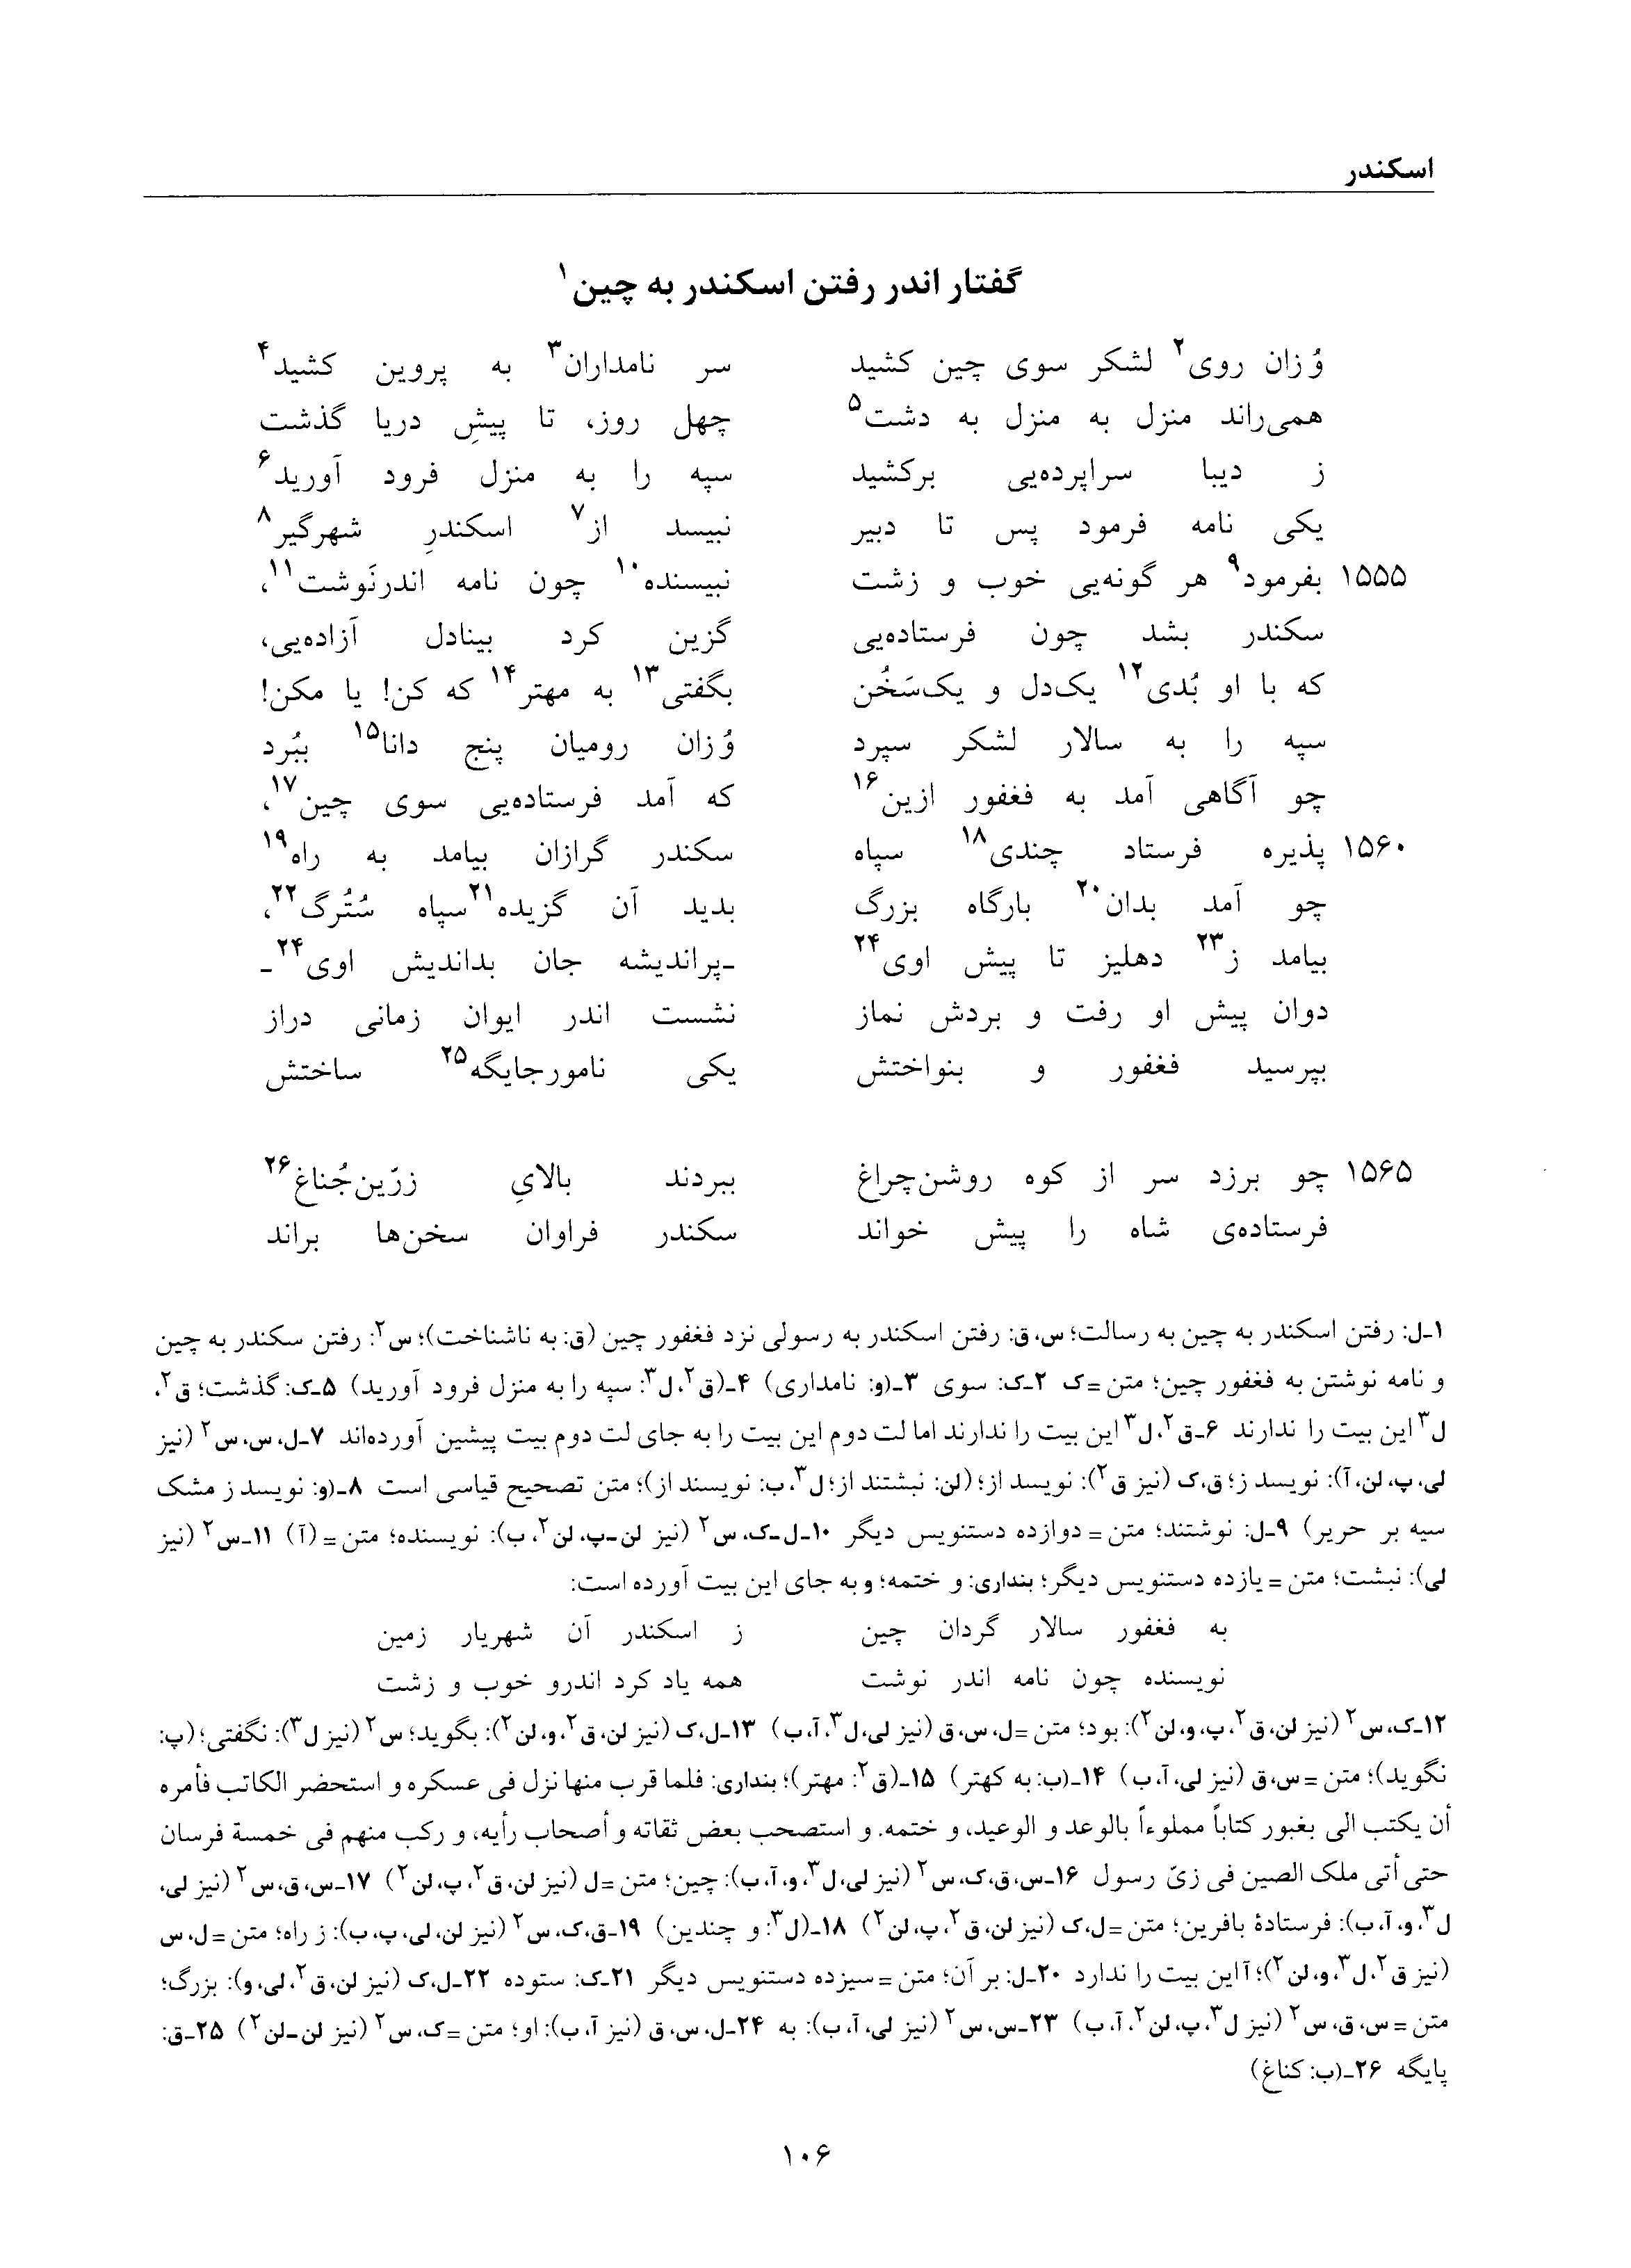 اسکندر
گفتار اندر رفتن اسکندر به چین۱
وُ زان روی۲ لشکر سوی چین کشید سر نامداران۳ به پروین کشید۴
همی‌راند منزل به منزل به دشت۵ چهل روز، تا پیشِ دریا گذشت
ز دیبا سراپرده‌یی برکشید سپه را به منزل فرود آورید۶
یکی نامه فرمود پس تا دبیر نبیسد از۷ اسکندرِ شهرگیر۸
۱۵۵۵ بفرمود۹ هر گونه‌یی خوب و زشت نبیسنده۱۰ چون نامه اندرنَوشت۱۱،
سکندر بشد چون فرستاده‌یی گزین کرد بینادل آزاده‌یی،
که با او بُدی۱۲ یک‌دل و یک‌سَخُن بگفتی۱۳ به مهتر۱۴ که کن! یا مکن!
سپه را به سالار لشکر سپرد وُ زان رومیان پنج دانا۱۵ ببُرد
چو آگاهی آمد به فغفور ازین۱۶ که آمد فرستاده‌یی سوی چین۱۷،
۱۵۶۰ پذیره فرستاد چندی۱۸ سپاه سکندر گرازان بیامد به راه۱۹
چو آمد بدان۲۰ بارگاه بزرگ بدید آن گزیده۲۱ سپاه سُتُرگ۲۲،
بیامد ز۲۳ دهلیز تا پیش اوی۲۴ ـ‌پراندیشه جان بداندیش اوی۲۴ـ
دوان پیش او رفت و بردش نماز نشست اندر ایوان زمانی دراز
بپرسید فغفور و بنواختش یکی نامورجایگه۲۵ ساختش
۱۵۶۵ چو برزد سر از کوه روشن‌چراغ ببردند بالایِ زرّین‌جُناغ۲۶
فرستاده‌ی شاه را پیش خواند سکندر فراوان سخن‌ها براند
۱ـ‌ل: رفتن اسکندر به چین به رسالت؛ س،ق: رفتن اسکندر به رسولی نزد فغفور چین (ق: به ناشناخت)؛ س۲: رفتن سکندر به چین
و نامه نوشتن به فغفور چین؛ متن=ک ۲ـ‌ک: سوی ۳ـ(و: نامداری) ۴ـ(ق۲،ل۳: سپه را به منزل فرود آورید) ۵ـ‌ک: گذشت؛ ق۲،
ل۳ این بیت را ندارند ۶ـ‌ق۲،ل۳ این بیت را ندارند اما لت دوم این بیت را به جای لت دوم بیت پیشین آورده‌اند ۷ـ‌ل،س،س۲ (نیز
لی،پ،لن،آ): نویسد ز؛ ق،ک (نیز ق۲): نویسد از؛ (لن: نبشتند از؛ ل۳،ب: نویسند از)؛ متن تصحیح قیاسی است ۸ـ(و: نویسد ز مشک
سیه بر حریر) ۹ـ‌ل: نوشتند؛ متن=دوازده دستنویس دیگر ۱۰ـ‌ل‌ـ‌ک،س۲ (نیز لن‌ـ‌پ،لن۲،ب): نویسنده؛ متن=(آ) ۱۱ـ‌س۲ (نیز
لی): نبشت؛ متن=یازده دستنویس دیگر؛ بنداری: و ختمه؛ و به جای این بیت آورده است:
به فغفور سالار گردان چین ز اسکندر آن شهریار زمین
نویسنده چون نامه اندر نوشت همه یاد کرد اندرو خوب و زشت
۱۲ـ‌ک،س۲ (نیز لن،ق۲،پ،و،لن۲): بود؛ متن=ل،س،ق (نیز لی،ل۳،آ،ب) ۱۳ـ‌ل،ک (نیز لن،ق۲،و،لن۲): بگوید؛ س۲ (نیز ل۳): نگفتی؛ (پ:
نگوید)؛ متن=س،ق (نیز لی،آ،ب) ۱۴ـ(ب: به کهتر) ۱۵ـ(ق۲: مهتر)؛ بنداری: فلما قرب منها نزل فی عسکره و استحضر الکاتب فأمره
أن یکتب الی بغبور کتاباً مملوءاً بالوعد و الوعید، و ختمه. و استصحب بعض ثقاته و أصحاب رأیه، و رکب منهم فی خمسة فرسان
حتی أتی ملک الصین فی زیّ رسول ۱۶ـ‌س،ق،ک،س۲ (نیز لی،ل۳،و،آ،ب): چین؛ متن=ل (نیز لن،ق۲،پ،لن۲) ۱۷ـ‌س،ق،س۲ (نیز لی،
ل۳،و،آ،ب): فرستادهٔ بافرین؛ متن=ل،ک (نیز لن،ق۲،پ،لن۲) ۱۸ـ(ل۳: و چندین) ۱۹ـ‌ق،ک،س۲ (نیز لن،لی،پ،ب): ز راه؛ متن=ل،س
(نیز ق۲،ل۳،و،لن۲)؛ آ این بیت را ندارد ۲۰ـ‌ل: بر آن؛ متن=سیزده دستنویس دیگر ۲۱ـ‌ک: ستوده ۲۲ـ‌ل،ک (نیز لن،ق۲،لی،و): بزرگ؛
متن=س،ق،س۲ (نیز ل۳،پ،لن۲،آ،ب) ۲۳ـ‌س،س۲ (نیز لی،آ،ب): به ۲۴ـ‌ل،س،ق (نیز آ،ب): او؛ متن=ک،س۲ (نیز لن‌ـ‌لن۲) ۲۵ـ‌ق:
پایگه ۲۶ـ(ب: کناغ)
۱۰۶